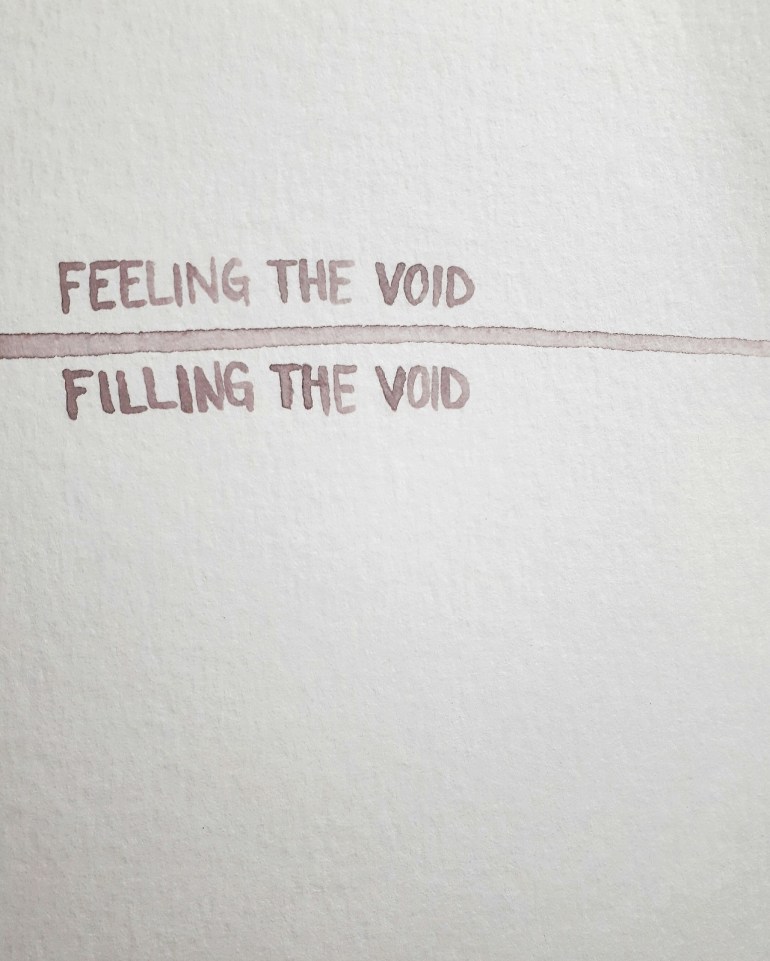 FEELING THE VOID
FILLING THE VOID